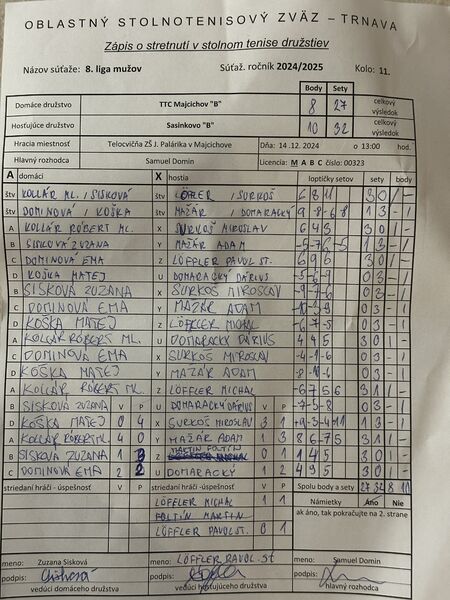 OBLASTNÝ STOLNOTENISOVÝ ZVÄZ – TRNAVA
Zápis o stretnutí v stolnom tenise družstiev
Názov súťaže: 8. liga mužov Súťaž. ročník 2024/2025 Kolo: 11.
Body Sety
Domáce družstvo TTC Majcichov "B" 8 27 celkový výsledok
Hosťujúce družstvo Sasinkovo "B" 10 32 celkový výsledok
Hracia miestnosť Telocvičňa ZŠ J. Palárika v Majcichove Dňa: 14.12.2024 o 13:00 hod.
Hlavný rozhodca Samuel Domin Licencia: M A B C číslo: 00323
A domáci X hostia loptičky setov sety body
štv KOLLÁR ML. / SISKOVÁ štv LÖFFLER / SURKOŠ 6 8 11 3 0 / -
štv DOMINOVÁ / KOŠKA štv MAŽÁR / DOMARACKÝ 9 -8 -6 -8 1 3 - 1
A KOLLÁR RÓBERT ML. X SURKOŠ MIROSLAV 6 4 3 3 0 / -
B SISKOVÁ ZUZANA Y MAZÁR ADAM -5 -7 6 -5 1 3 - 1
C DOMINOVÁ EMA Z LÖFFLER PAVOL ST. 6 9 6 3 0 1 -
D KOŠKA MATEJ U DOMARACKÝ DÁRIUS -5 -6 -9 0 3 - 1
B SISKOVÁ ZUZANA X SURKOŠ MIROSLAV 0 3 - 1
C DOMINOVÁ EMA Y MAZÁR ADAM 0 3 - 1
D KOŠKA MATEJ Z LÖFFLER MICHAL -6 -7 -5 0 3 - 1
A KOLLÁR RÓBERT ML. U DOMARACKÝ DÁRIUS 4 4 5 3 0 1 -
C DOMINOVÁ EMA X SURKOŠ MIROSLAV -4 -1 -6 0 3 - 1
D KOŠKA MATEJ Y MAZÁR ADAM -8 -10 -6 0 3 - 1
A KOLLÁR RÓBERT ML. Z LÖFFLER MICHAL -6 7 5 6 3 1 1 -
B SISKOVÁ ZUZANA V P U DOMARACKÝ DÁRIUS V P -7 -3 -8 0 3 - 1
D KOŠKA MATEJ 0 4 X SURKOŠ MIROSLAV 3 1 1 3 - 1
A KOLLÁR RÓBERT ML. 4 0 Y MAZÁR ADAM 1 3 8 6 -7 5 3 1 1 -
B SISKOVÁ ZUZANA 1 3 Z MARTIN FOLTÍN 0 1 1 4 5 3 0 1 -
C DOMINOVÁ EMA 2 2 U DOMARACKÝ 1 2 4 9 5 3 0 1 -
striedaní hráči - úspešnosť V P striedaní hráči - úspešnosť V P Spolu body a sety 27 32 8 10
LÖFFLER MICHAL 1 1 Námietky Áno Nie
FOLTÍN MARTIN ak áno, tak pokračujte na 2. strane
LÖFFLER PAVOL ST. 0 1
meno: Zuzana Sisková meno: LÖFFLER PAVOL ST meno: Samuel Domin
podpis: podpis: podpis:
vedúci domáceho družstva vedúci hosťujúceho družstva hlavný rozhodca